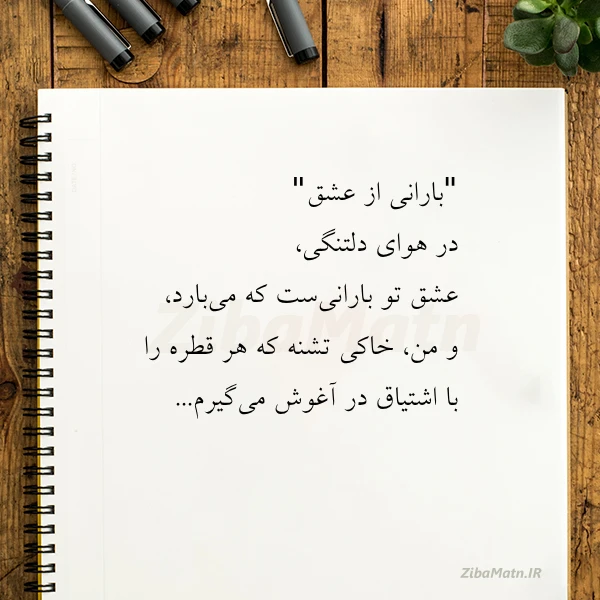 "بارانی از عشق"
در هوای دلتنگی،
عشق تو بارانی‌ست که می‌بارد،
و من، خاکی تشنه که هر قطره را
با اشتیاق در آغوش می‌گیرم...
ZibaMatn
ZibaMatn.IR